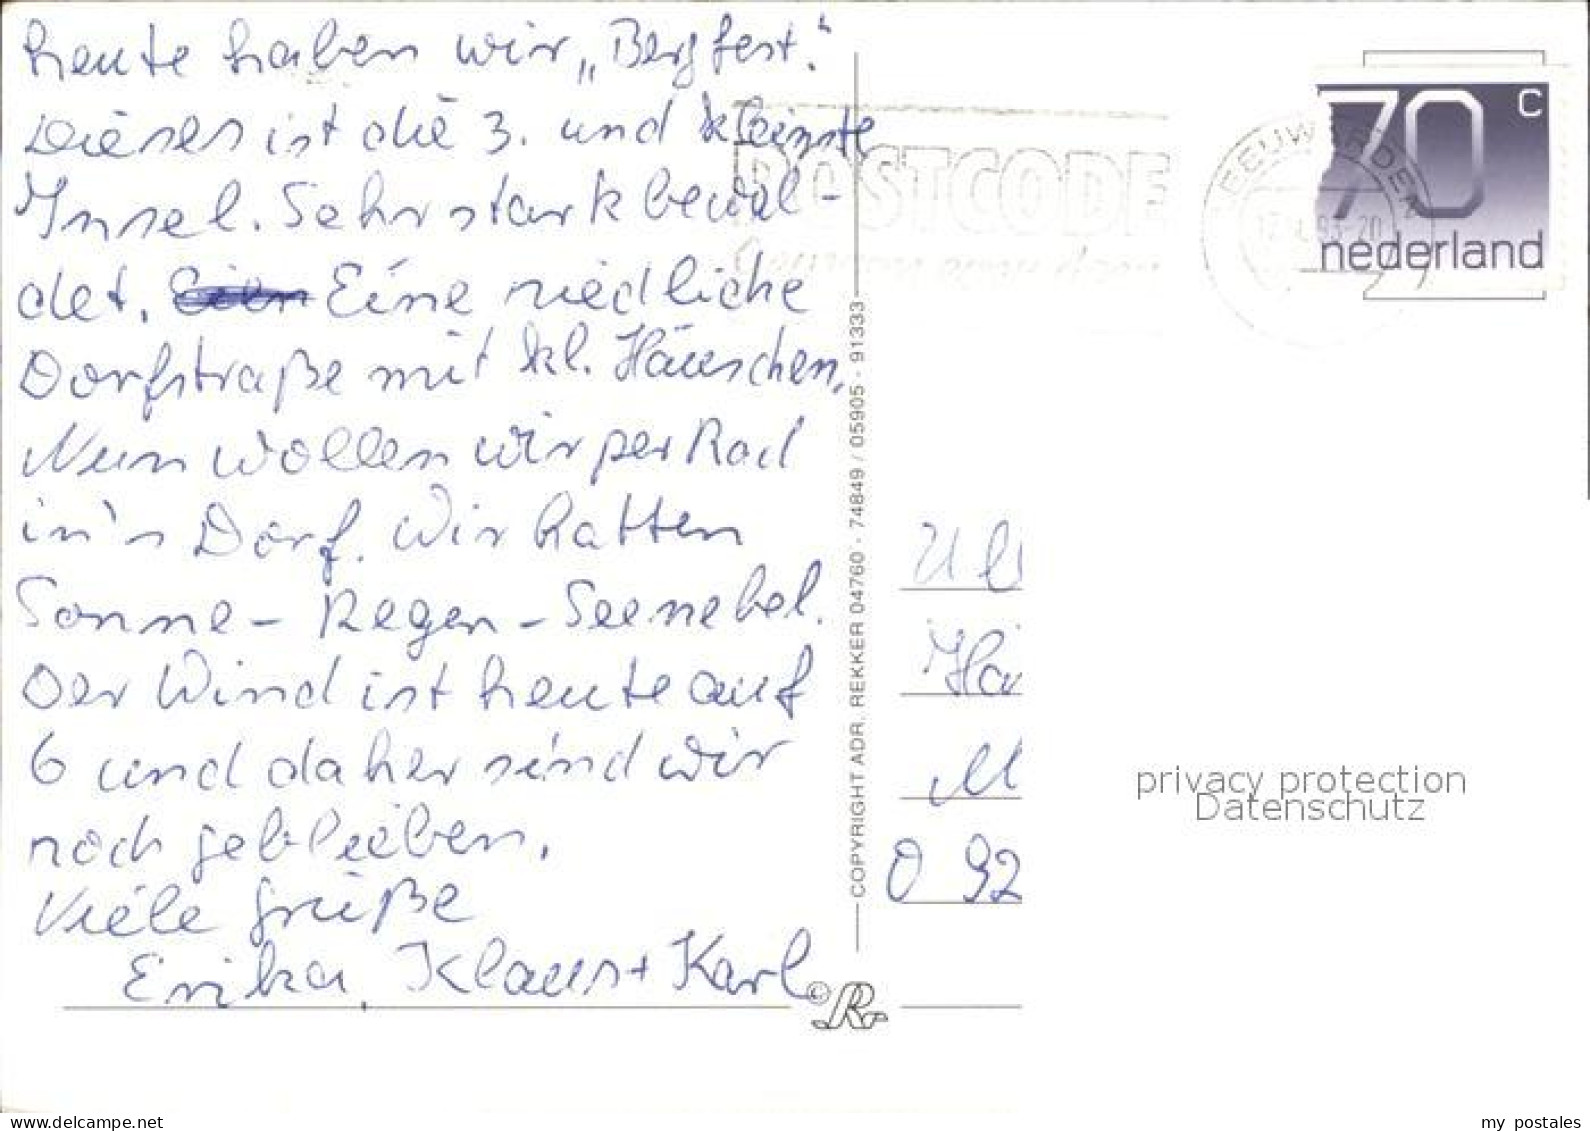 heute haben wir „Bergfest.“
Dieses ist die 3. und kleinste
Insel. Sehr stark bewal-
det. Eine niedliche
Dorfstraße mit kl. Häuschen.
Nun wollen wir per Rad
in's Dorf. Wir hatten
Sonne - Regen - Seenebel.
Der Wind ist heute auf
6 und daher sind wir
noch geblieben.
Viele Grüße
Erika, Klaus + Karl
COPYRIGHT ADR. REKKER 04760 - 74849 / 05905 - 91333
R
POSTCODE
LEEUWARDEN
70 c
nederland
O 92
privacy protection
Datenschutz
www.delcampe.net
my_postales